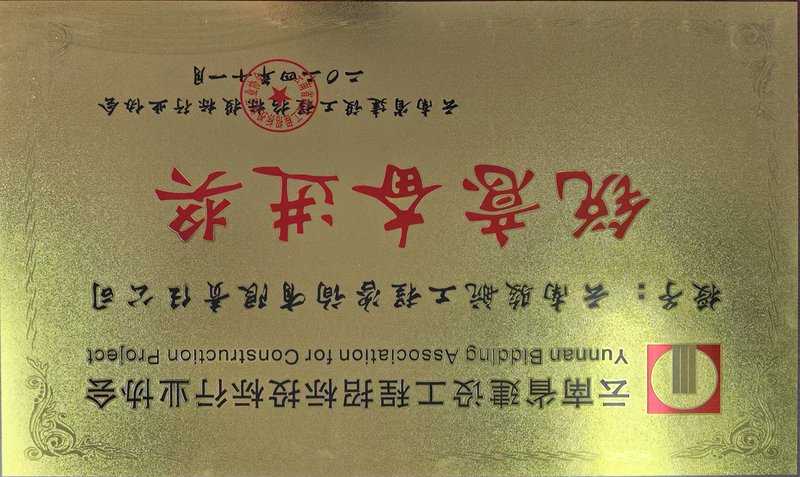 云南省建设工程招标投标行业协会
Yunnan Bidding Association for Construction Project
授予：云南骏航工程咨询有限责任公司
锐意奋进奖
云南省建设工程招标投标行业协会
二〇二四年十一月